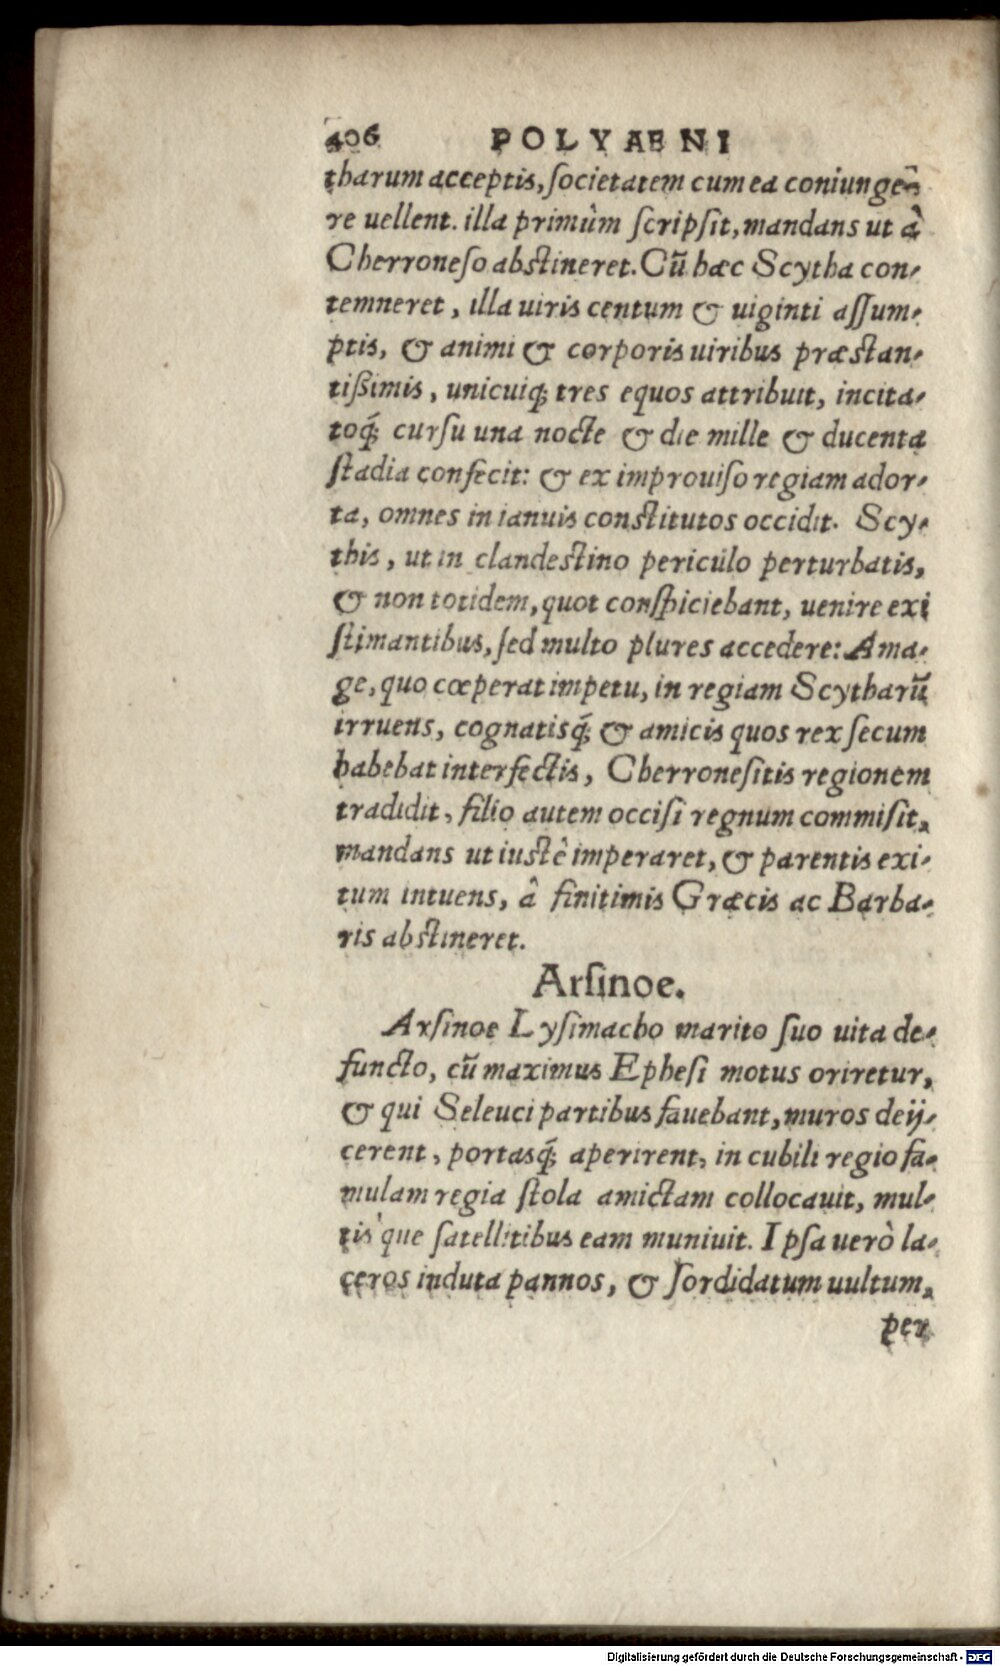 406 POLYAENI
tharum acceptis, ſocietatem cum ea coniunge-
re uellent. illa primùm ſcripſit, mandans ut à
Cherroneſo abſtineret. Cũ hæc Scytha con-
temneret, illa uiris centum & uiginti aſſum-
ptis, & animi & corporis uiribus præstan-
tißimis, unicuiq; tres equos attribuit, incita-
toq́; curſu una nocte & die mille & ducenta
ſtadia confecit: & ex improuiſo regiam ador-
ta, omnes in ianuis conſtitutos occidit. Scy-
this, ut in clandeſtino periculo perturbatis,
& non totidem, quot conſpiciebant, uenire exi
ſtimantibus, ſed multo plures accedere: Ama-
ge, quo cœperat impetu, in regiam Scytharũ
irruens, cognatisq́; & amicis quos rex ſecum
habebat interfectis, Cherroneſitis regionem
tradidit, filio autem occiſi regnum commiſit,
mandans ut iuſtè imperaret, & parentis exi-
tum intuens, â finitimis Græcis ac Barba-
ris abſtineret.
Arſinoe.
Arſinoe Lyſimacho marito ſuo uita de-
functo, cũ maximus Epheſi motus oriretur,
& qui Seleuci partibus fauebant, muros deij-
cerent, portasq́; aperirent, in cubili regio fa-
mulam regia ſtola amictam collocauit, mul-
tis'que ſatellitibus eam muniuit. Ipſa uerò la-
ceros induta pannos, & ſordidatum uultum,
per
Digitalisierung gefördert durch die Deutsche Forschungsgemeinschaft - DFG